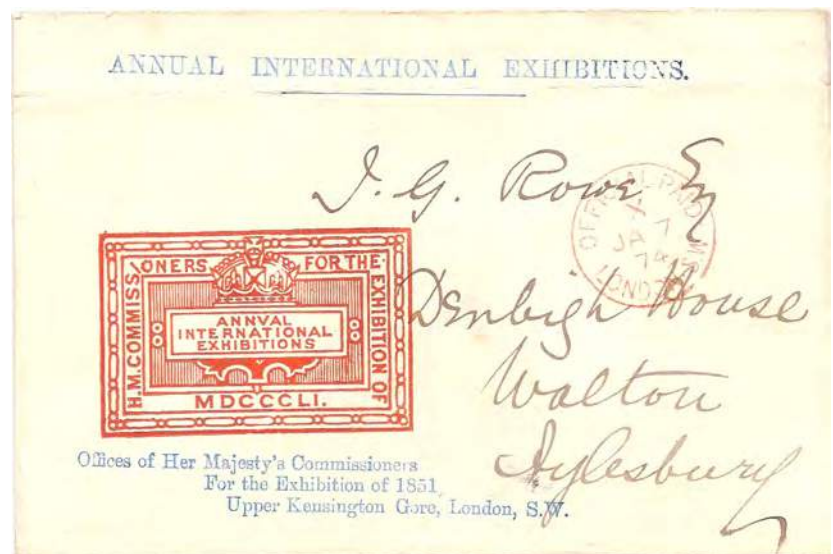 ANNUAL INTERNATIONAL EXHIBITIONS.
J. G. Rowe Eq
OFFICIAL PAID
X
7
JA 7
74
LONDON
H.M. COMMISSIONERS FOR THE EXHIBITION OF
ANNVAL
INTERNATIONAL
EXHIBITIONS
MDCCCLI.
Denbigh House
Walton
Aylesbury
Offices of Her Majesty's Commissioners
For the Exhibition of 1851,
Upper Kensington Gore, London, S.W.